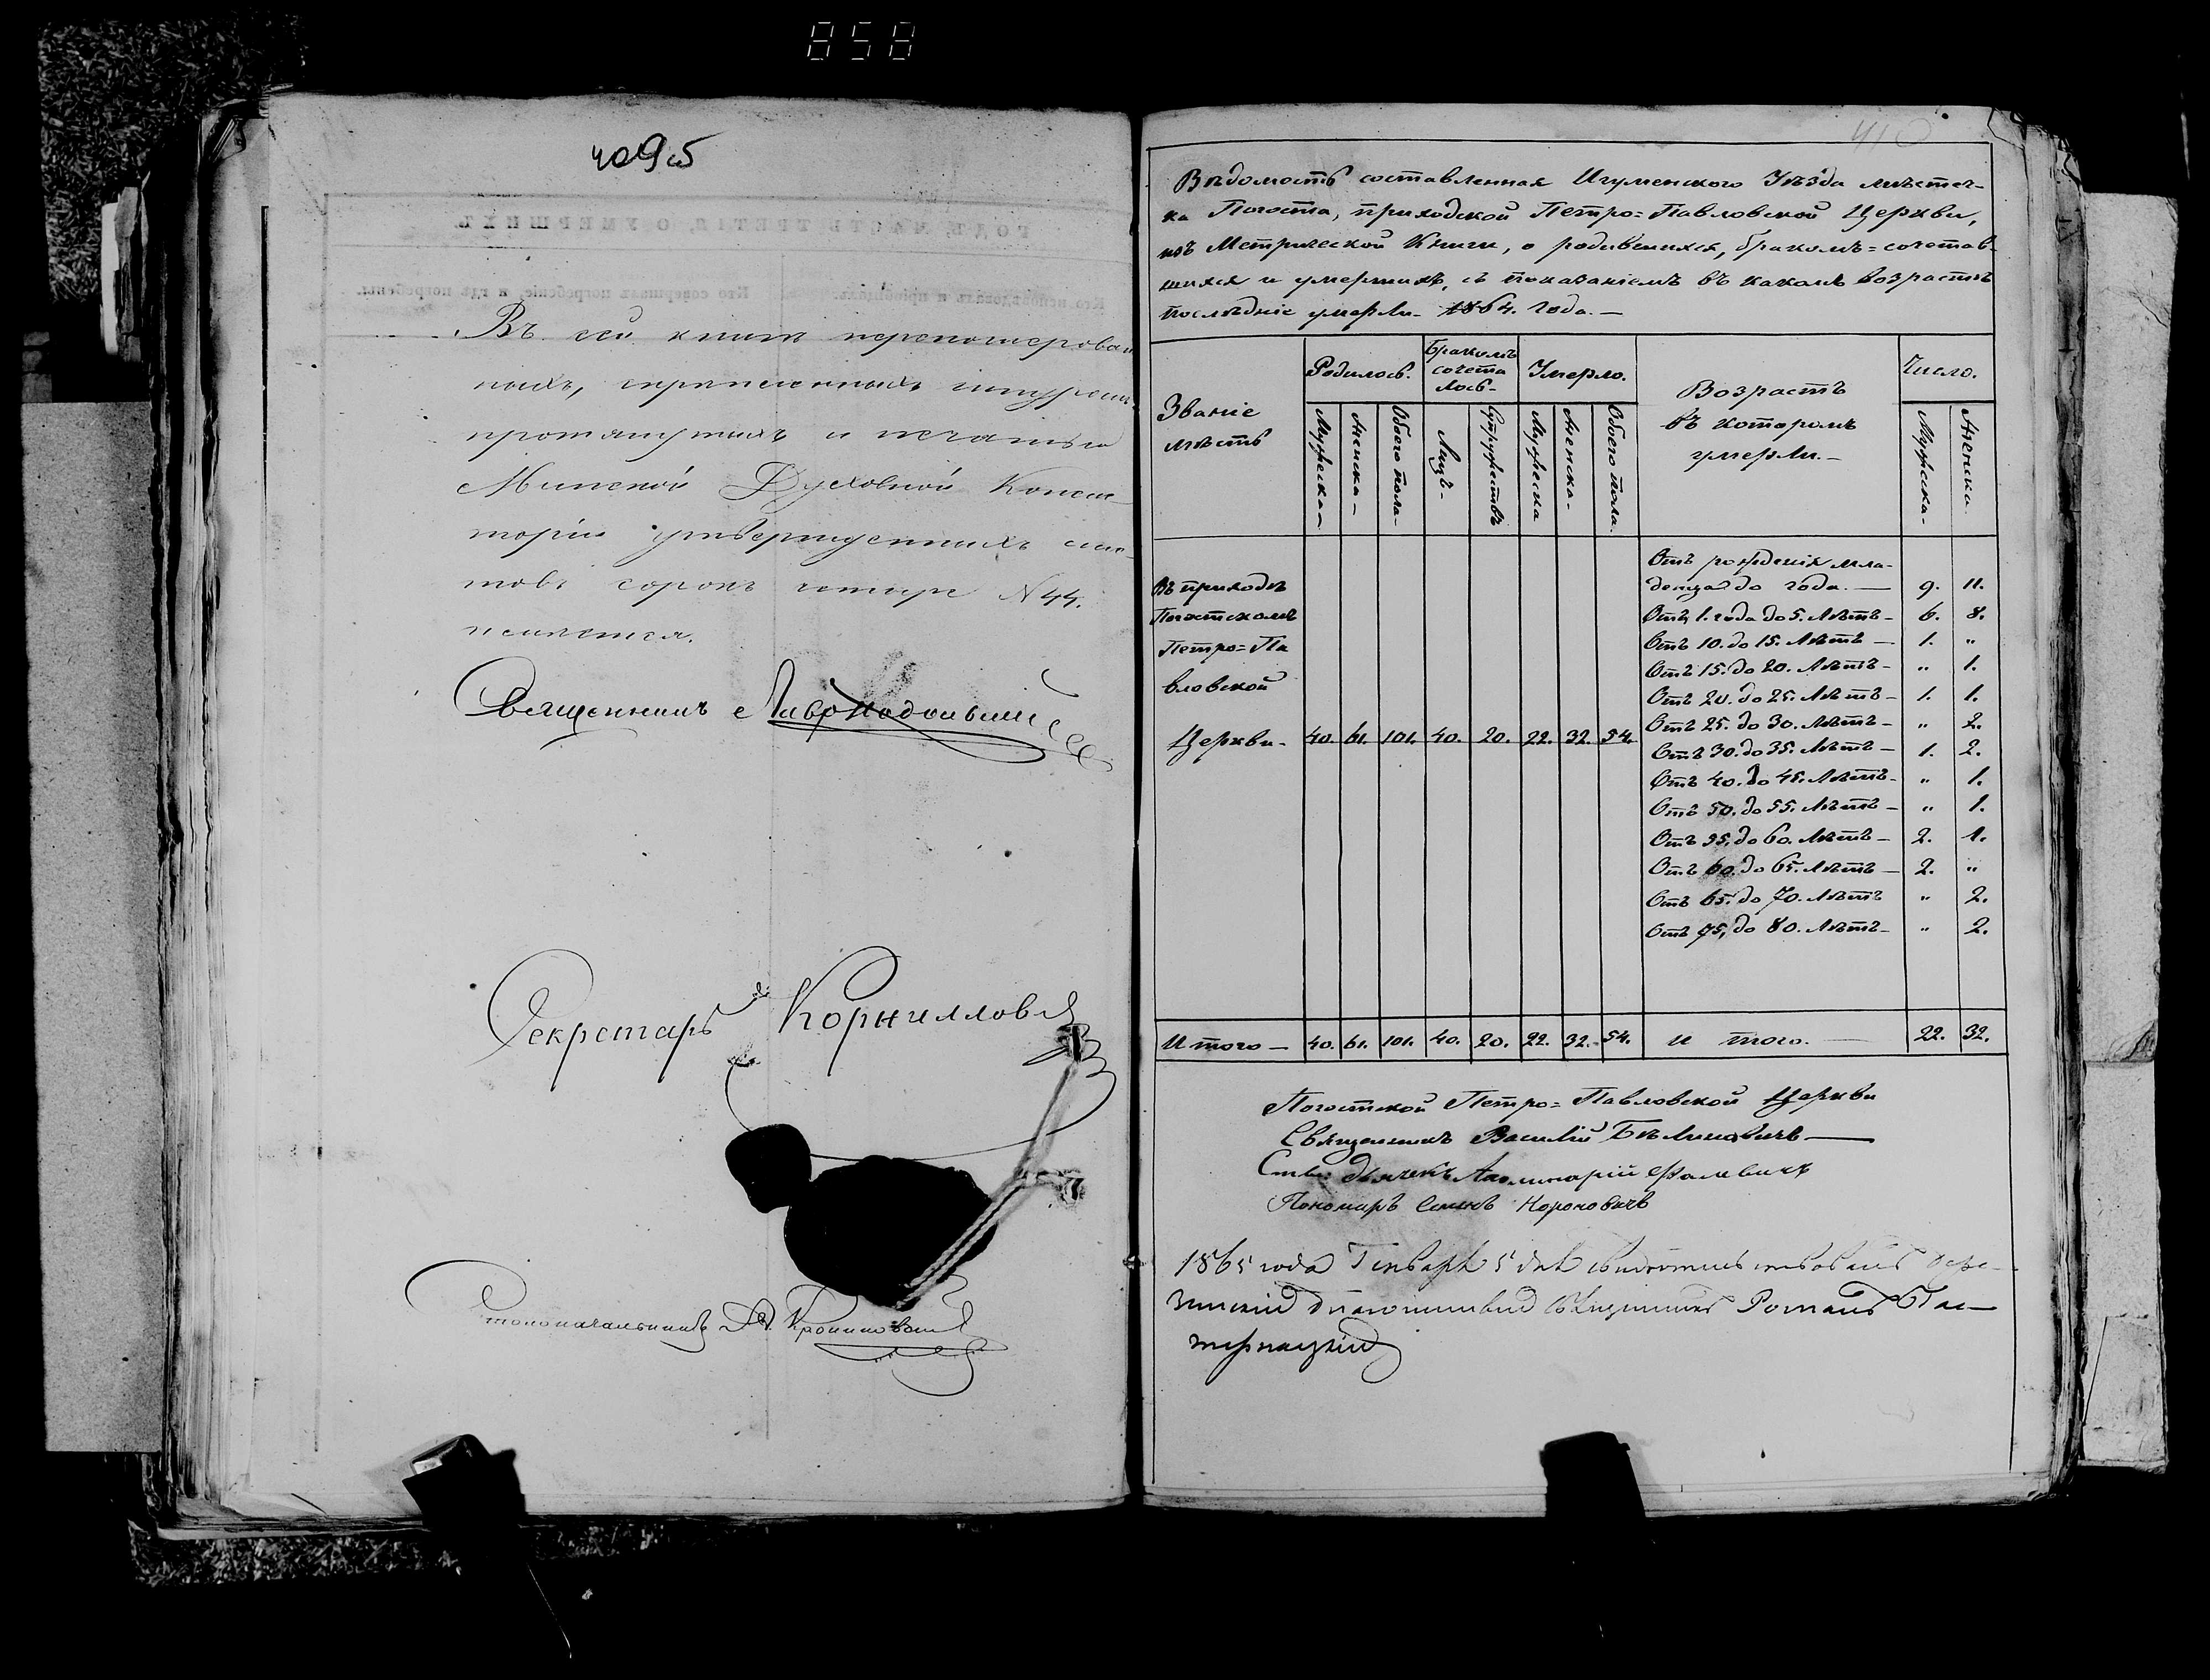 858
409об
Въ сей книгѣ перенумерован
ныхъ, скрѣпленныхъ шнуромъ
протянутыхъ и печатью
Минской Духовной Конси
торіи утвержденныхъ лис
товъ сорокъ четыре N 44.
имѣется.
Священникъ
Секретарь Корниловъ
Столоначальникъ
410
Вѣдомость составленная Игуменского Уѣзда мѣстеч-
ка Погоста, приходской Петро=Павловской Церкви,
изъ Метрической Книги, о родившихся, бракомъ=сочетав-
шихся и умершихъ, съ показаніемъ въ какомъ возрастѣ
послѣдніе умерли. 1864. года.—
Званіе мѣстъ
Родилось.
Бракомъ сочета лось-
Умерло.
Возрастъ въ которомъ умерли.—
Число.
Мужеска-
Женска-
Обоего пола-
Лицъ-
Супружествъ
Мужеска
Женска-
Обоего пола.
Мужеска-
Женска.
Въ приходѣ
Погостскомъ
Петро=Па
вловской
Церкви- 40. 61. 101. 40. 20. 22. 32. 54.
Отъ рожденія мла-
денца до года.— 9. 11.
Отъ 1. года до 5. Лѣтъ- 6. 8.
Отъ 10. до 15. Лѣтъ- 1. "
Отъ 15. до 20. Лѣтъ- " 1.
Отъ 20. до 25. Лѣтъ- 1. 1.
Отъ 25. до 30. Лѣтъ- " 2.
Отъ 30. до 35. Лѣтъ- 1. 2.
Отъ 40. до 45. Лѣтъ- " 1.
Отъ 50. до 55. Лѣтъ- " 1.
Отъ 55. до 60. Лѣтъ- 2. 1.
Отъ 60. до 65. Лѣтъ- 2. "
Отъ 65. до 70. Лѣтъ " 2.
Отъ 75. до 80. Лѣтъ- " 2.
Итого- 40. 61. 101. 40. 20. 22. 32. 54. и того.— 22. 32.
Погостской Петро=Павловской Церкви
Священникъ Василій
дьячекъ Аполинарій Фалевичъ
Пономарь
1865 года Генваря 5 дня свидѣтельствовалъ
Романъ Пас-
тернацкій